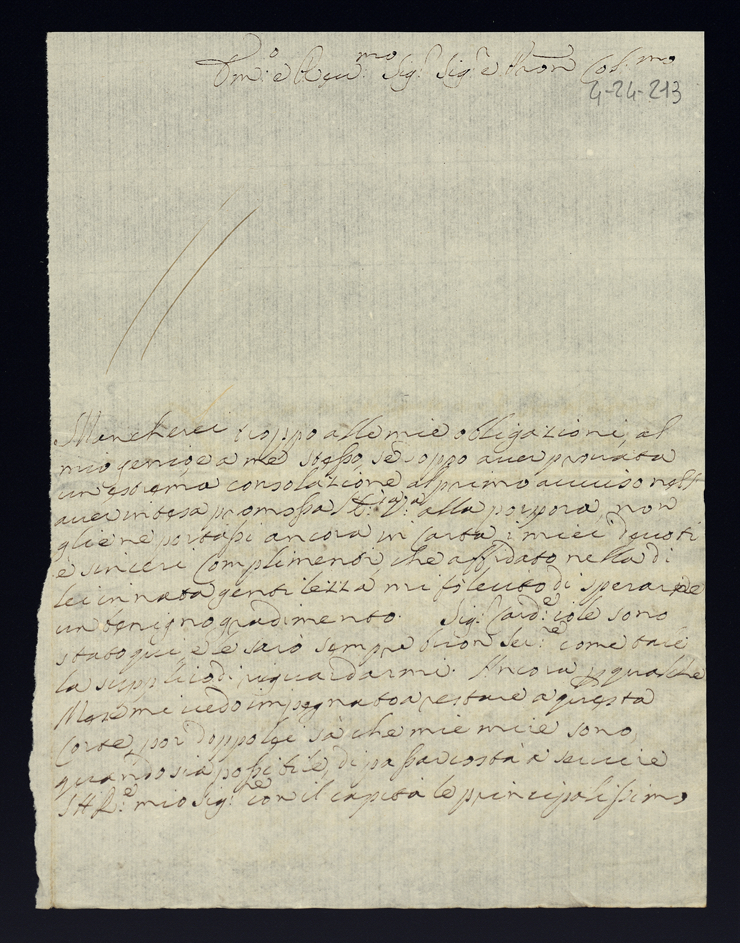 Em:o e Rev:mo Sig:r Sig:r e Pron Col:mo
4-24-213
Mancherei troppo alle mie obligazione, al
mio genio, e a me stesso, se doppo aver provata
un estrema consolazione al primo avviso nell
aver intesa promossa alla porpora, non
gliene portassi ancora in carta i miei devoti
e sinceri complimenti, che affidato nella di
lei innata gentilezza mi fo lecito di sperarne
un benigno gradimento. Sig:r Card:le sono
stato qui e e sarò sempre buon Ser:re come tale
la supplico di riguardarmi. Ancora p qualche
Mese mi vedo impegnato a restare a questa
Corte, poi doppo lei sa che mie mire sono,
quando sia possibile, di passar costà a servire
S A R:e mio Sig:re con il capitale principalissimo